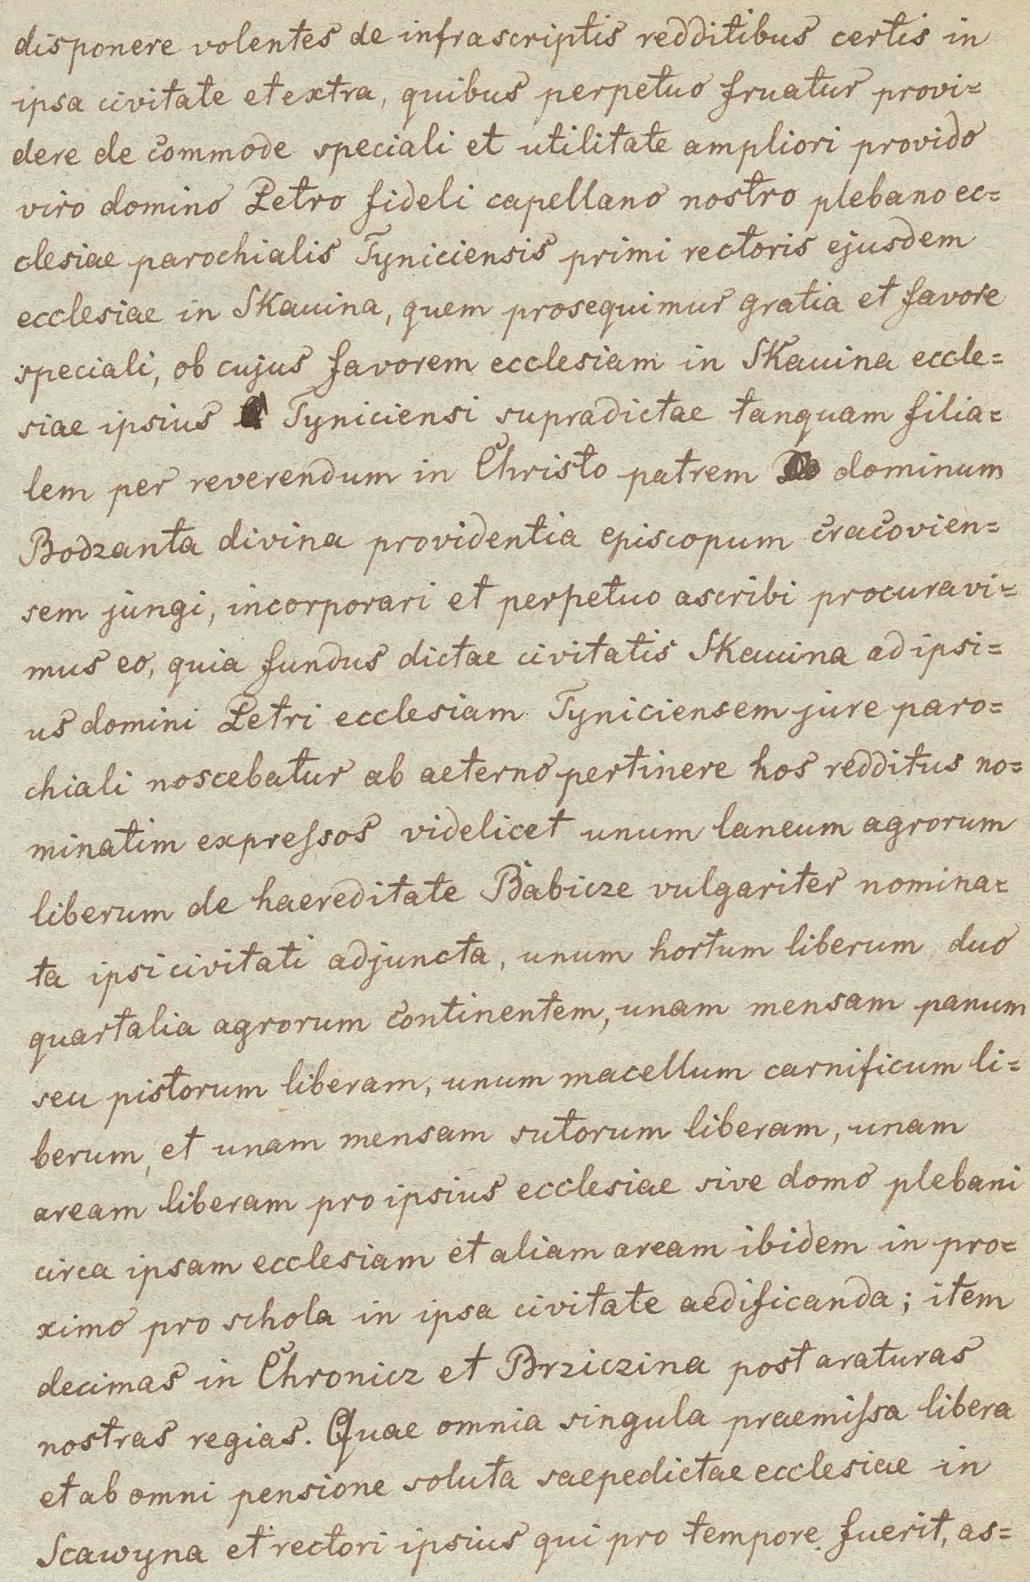 disponere volentes de infrascriptis redditibus certis in
ipsa civitate et extra, quibus perpetuo fruatur provi=
dere de commode speciali et utilitate ampliori provido
viro domino Petro fideli capellano nostro plebano ec=
clesiae parochialis Tyniciensis primi rectoris ejusdem
ecclesiae in Skauina, quem prosequimur gratia et favore
speciali, ob cujus favorem ecclesiam in Skauina eccle=
siae ipsius Tyniciensi supradictae tanquam filia=
lem per reverendum in Christo patrem dominum
Bodzanta divina providentia episcopum cracovien=
sem jungi, incorporari et perpetuo ascribi procuravi=
mus eo, quia fundus dictae civitatis Skauina ad ipsi=
us domini Petri ecclesiam Tyniciensem jure paro=
chiali noscebatur ab aeterno pertinere hos redditus no=
minatim expreſsos videlicet unum laneum agrorum
liberum de haereditate Babicze vulgariter nomina=
ta ipsi civitati adjuncta, unum hortum liberum duo
quartalia agrorum continentem, unam mensam panum
seu pistorum liberam, unum macellum carnificum li=
berum, et unam mensam sutorum liberam, unam
aream liberam pro ipsius ecclesiae sive domo plebani
circa ipsam ecclesiam et aliam aream ibidem in pro=
ximo pro schola in ipsa civitate aedificanda; item
decimas in Chronicz et Brziczina post araturas
nostras regias. Quae omnia singula praemiſsa libera
et ab omni pensione soluta saepedictae ecclesiae in
Scawyna et rectori ipsius qui pro tempore fuerit, as=